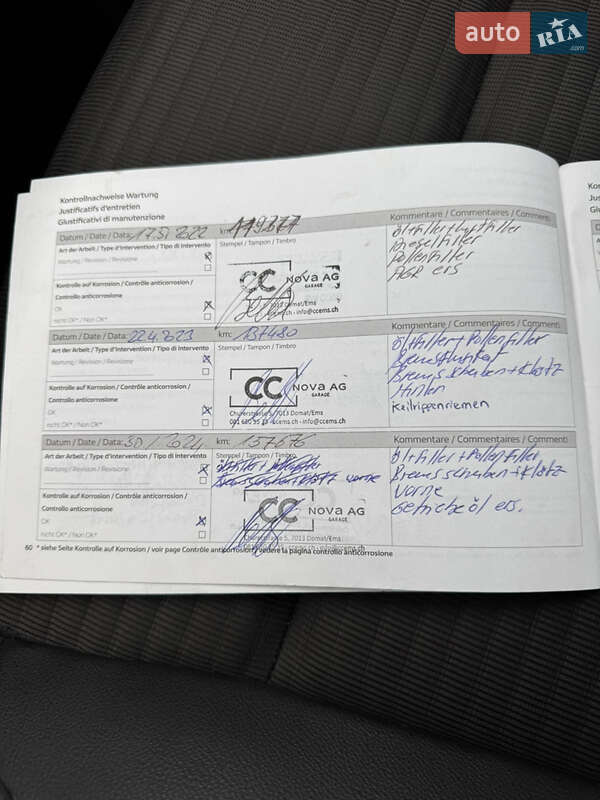 auto RIA .com
Kontrollnachweise Wartung
Justificatifs d'entretien
Giustificativi di manutenzione
Datum / Date / Data: 17.5.2022 km: 119377 Kommentare / Commentaires / Commenti
Art der Arbeit / Type d'intervention / Tipo di intervento Stempel / Tampon / Timbro
Wartung / Révision / Revisione
Kontrolle auf Korrosion / Contrôle anticorrosion /
Controllo anticorrosione
OK
nicht OK* / Non OK*
Ölfilter Luftfilter
Dieselfilter
Pollenfilter
AGR ers
CC Nova AG
GARAGE
7013 Domat/Ems
ch - info@ccems.ch
Datum / Date / Data: 22.4.2023 km: 137480 Kommentare / Commentaires / Commenti
Art der Arbeit / Type d'intervention / Tipo di intervento Stempel / Tampon / Timbro
Wartung / Révision / Revisione
Kontrolle auf Korrosion / Contrôle anticorrosion /
Controllo anticorrosione
OK
nicht OK* / Non OK*
Ölfilter + Pollenfilter
Bremsflüssigkeit
Bremsscheiben + Klötz
Hinten
Keilrippenriemen
CC Nova AG
GARAGE
Churerstrasse 5, 7013 Domat/Ems
ccems.ch - info@ccems.ch
Datum / Date / Data: 2024 km: 157676 Kommentare / Commentaires / Commenti
Art der Arbeit / Type d'intervention / Tipo di intervento Stempel / Tampon / Timbro
Wartung / Révision / Revisione
Kontrolle auf Korrosion / Contrôle anticorrosion /
Controllo anticorrosione
OK
nicht OK* / Non OK*
vorne
Ölfilter + Pollenfilter
Bremsscheiben + Klötz
Vorne
Getriebeöl ers.
CC Nova AG
GARAGE
Churerstrasse 5, 7013 Domat/Ems
60 * siehe Seite Kontrolle auf Korrosion / voir page Contrôle anticorrosion / vedere la pagina controllo anticorrosione